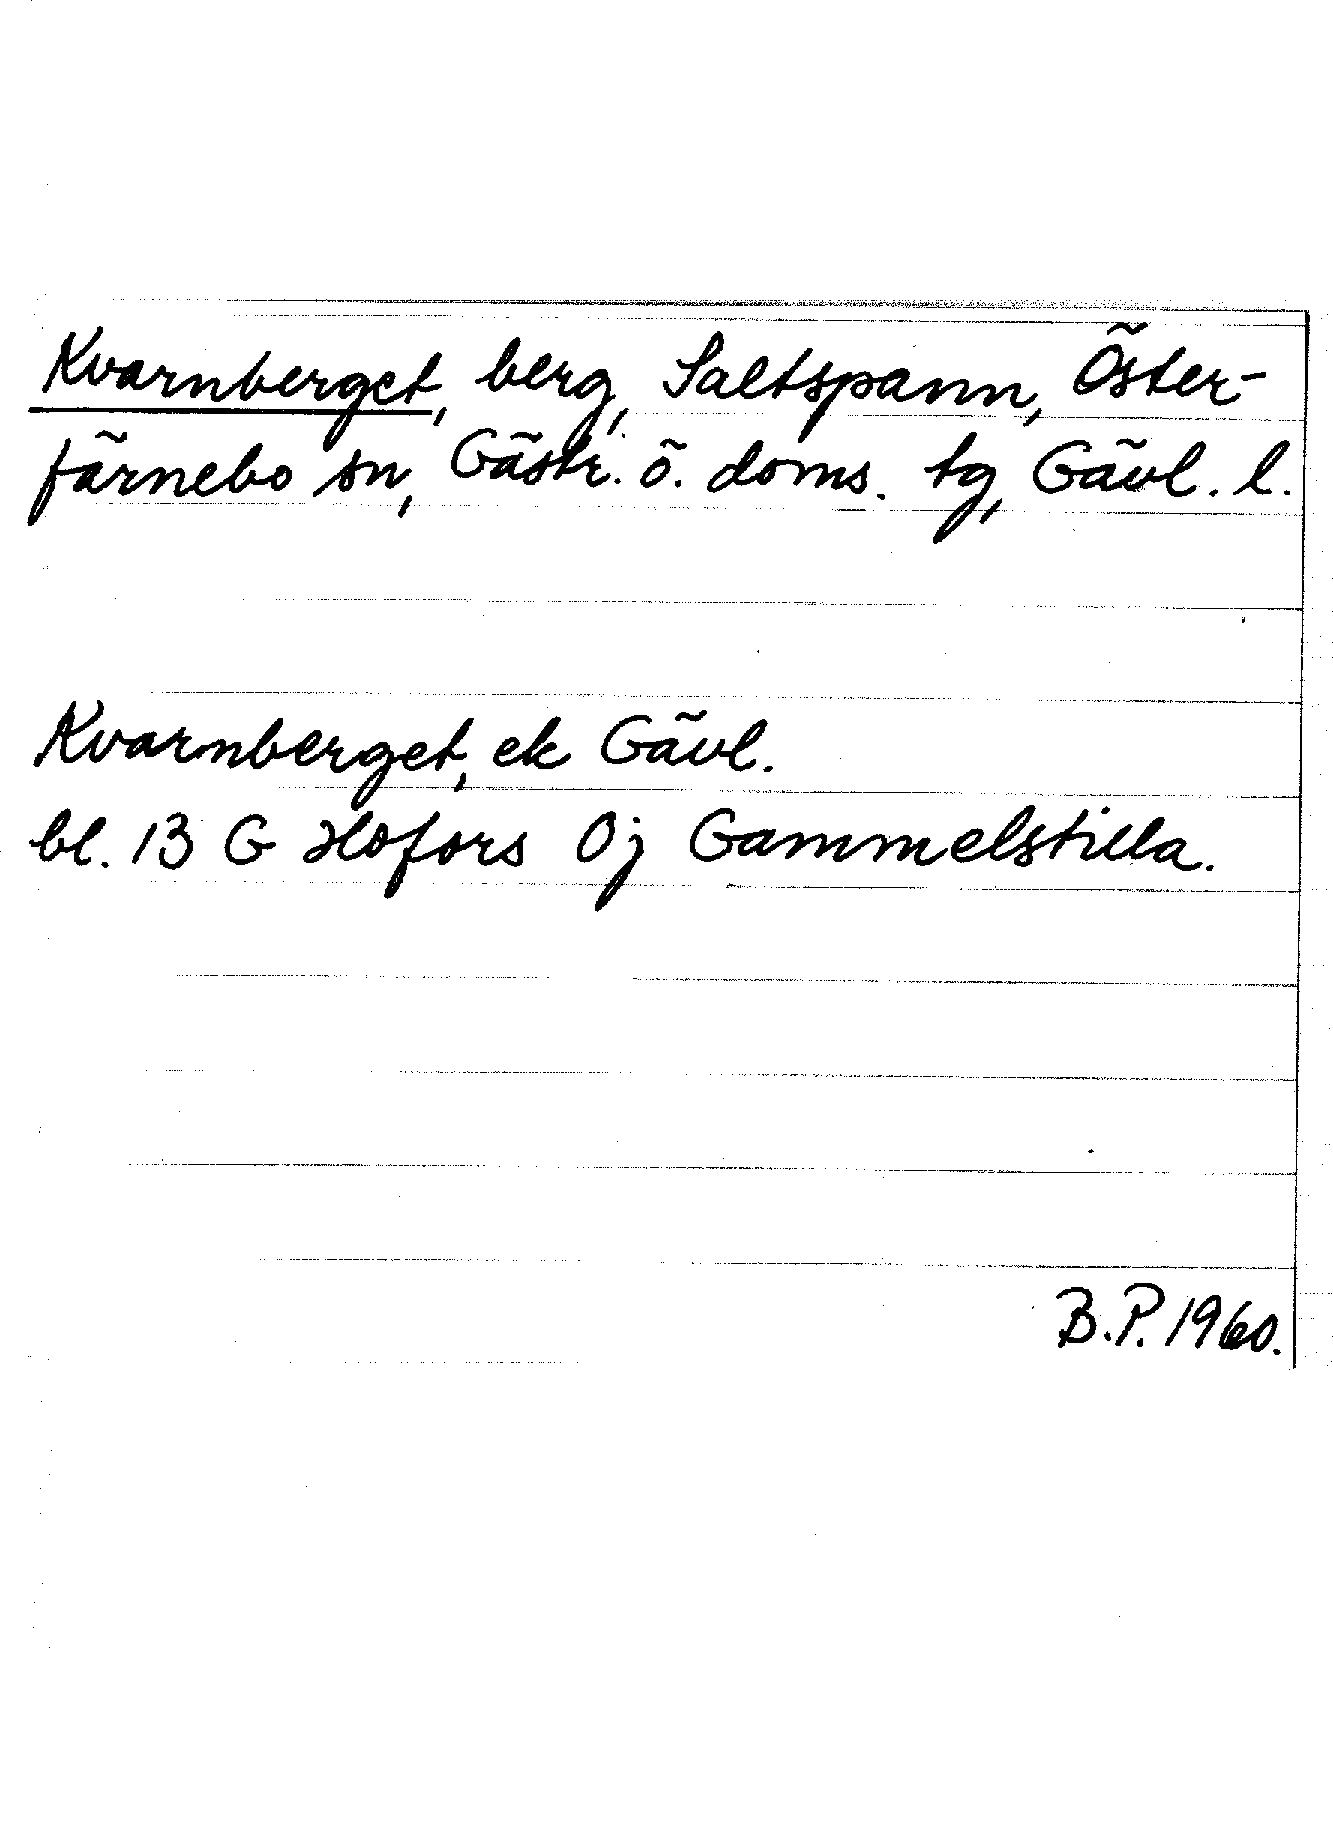 Kvarnberget, berg, Saltspann, Öster-
färnebo sn, Gästr. ö. doms. tg, Gävl. l.
Kvarnberget, ek Gävl.
bl. 13 G Hofors 0j Gammelstilla.
B.P. 1960.